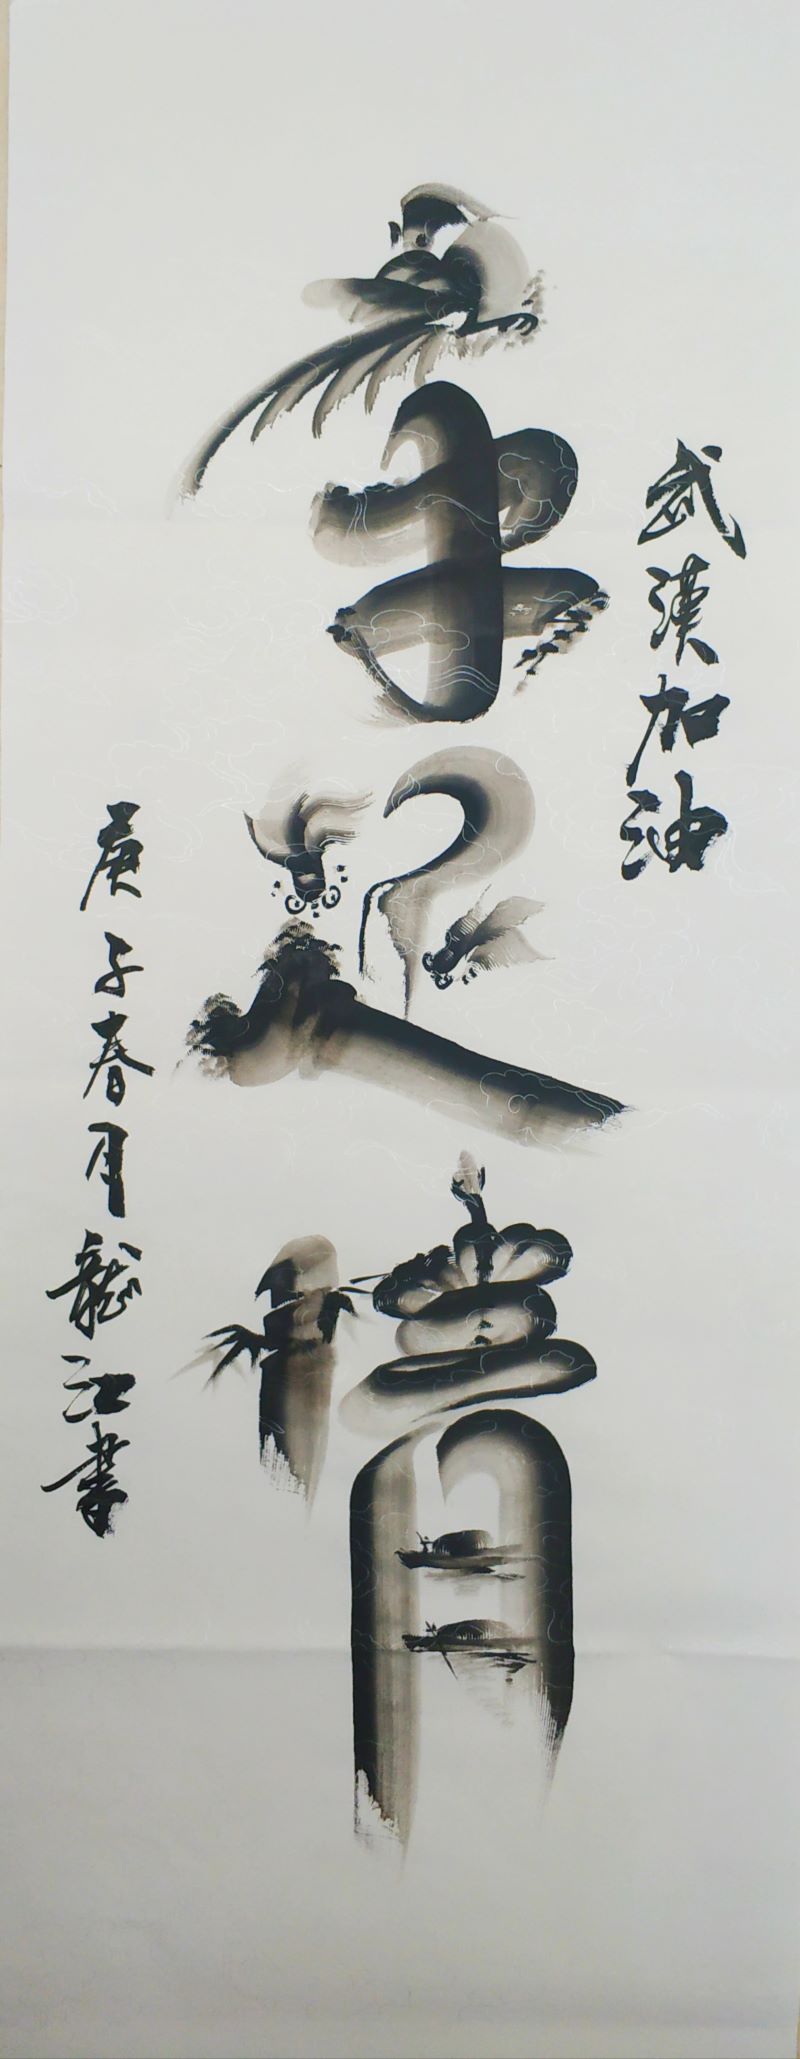 武漢加油
手足情
庚子春月龍江書